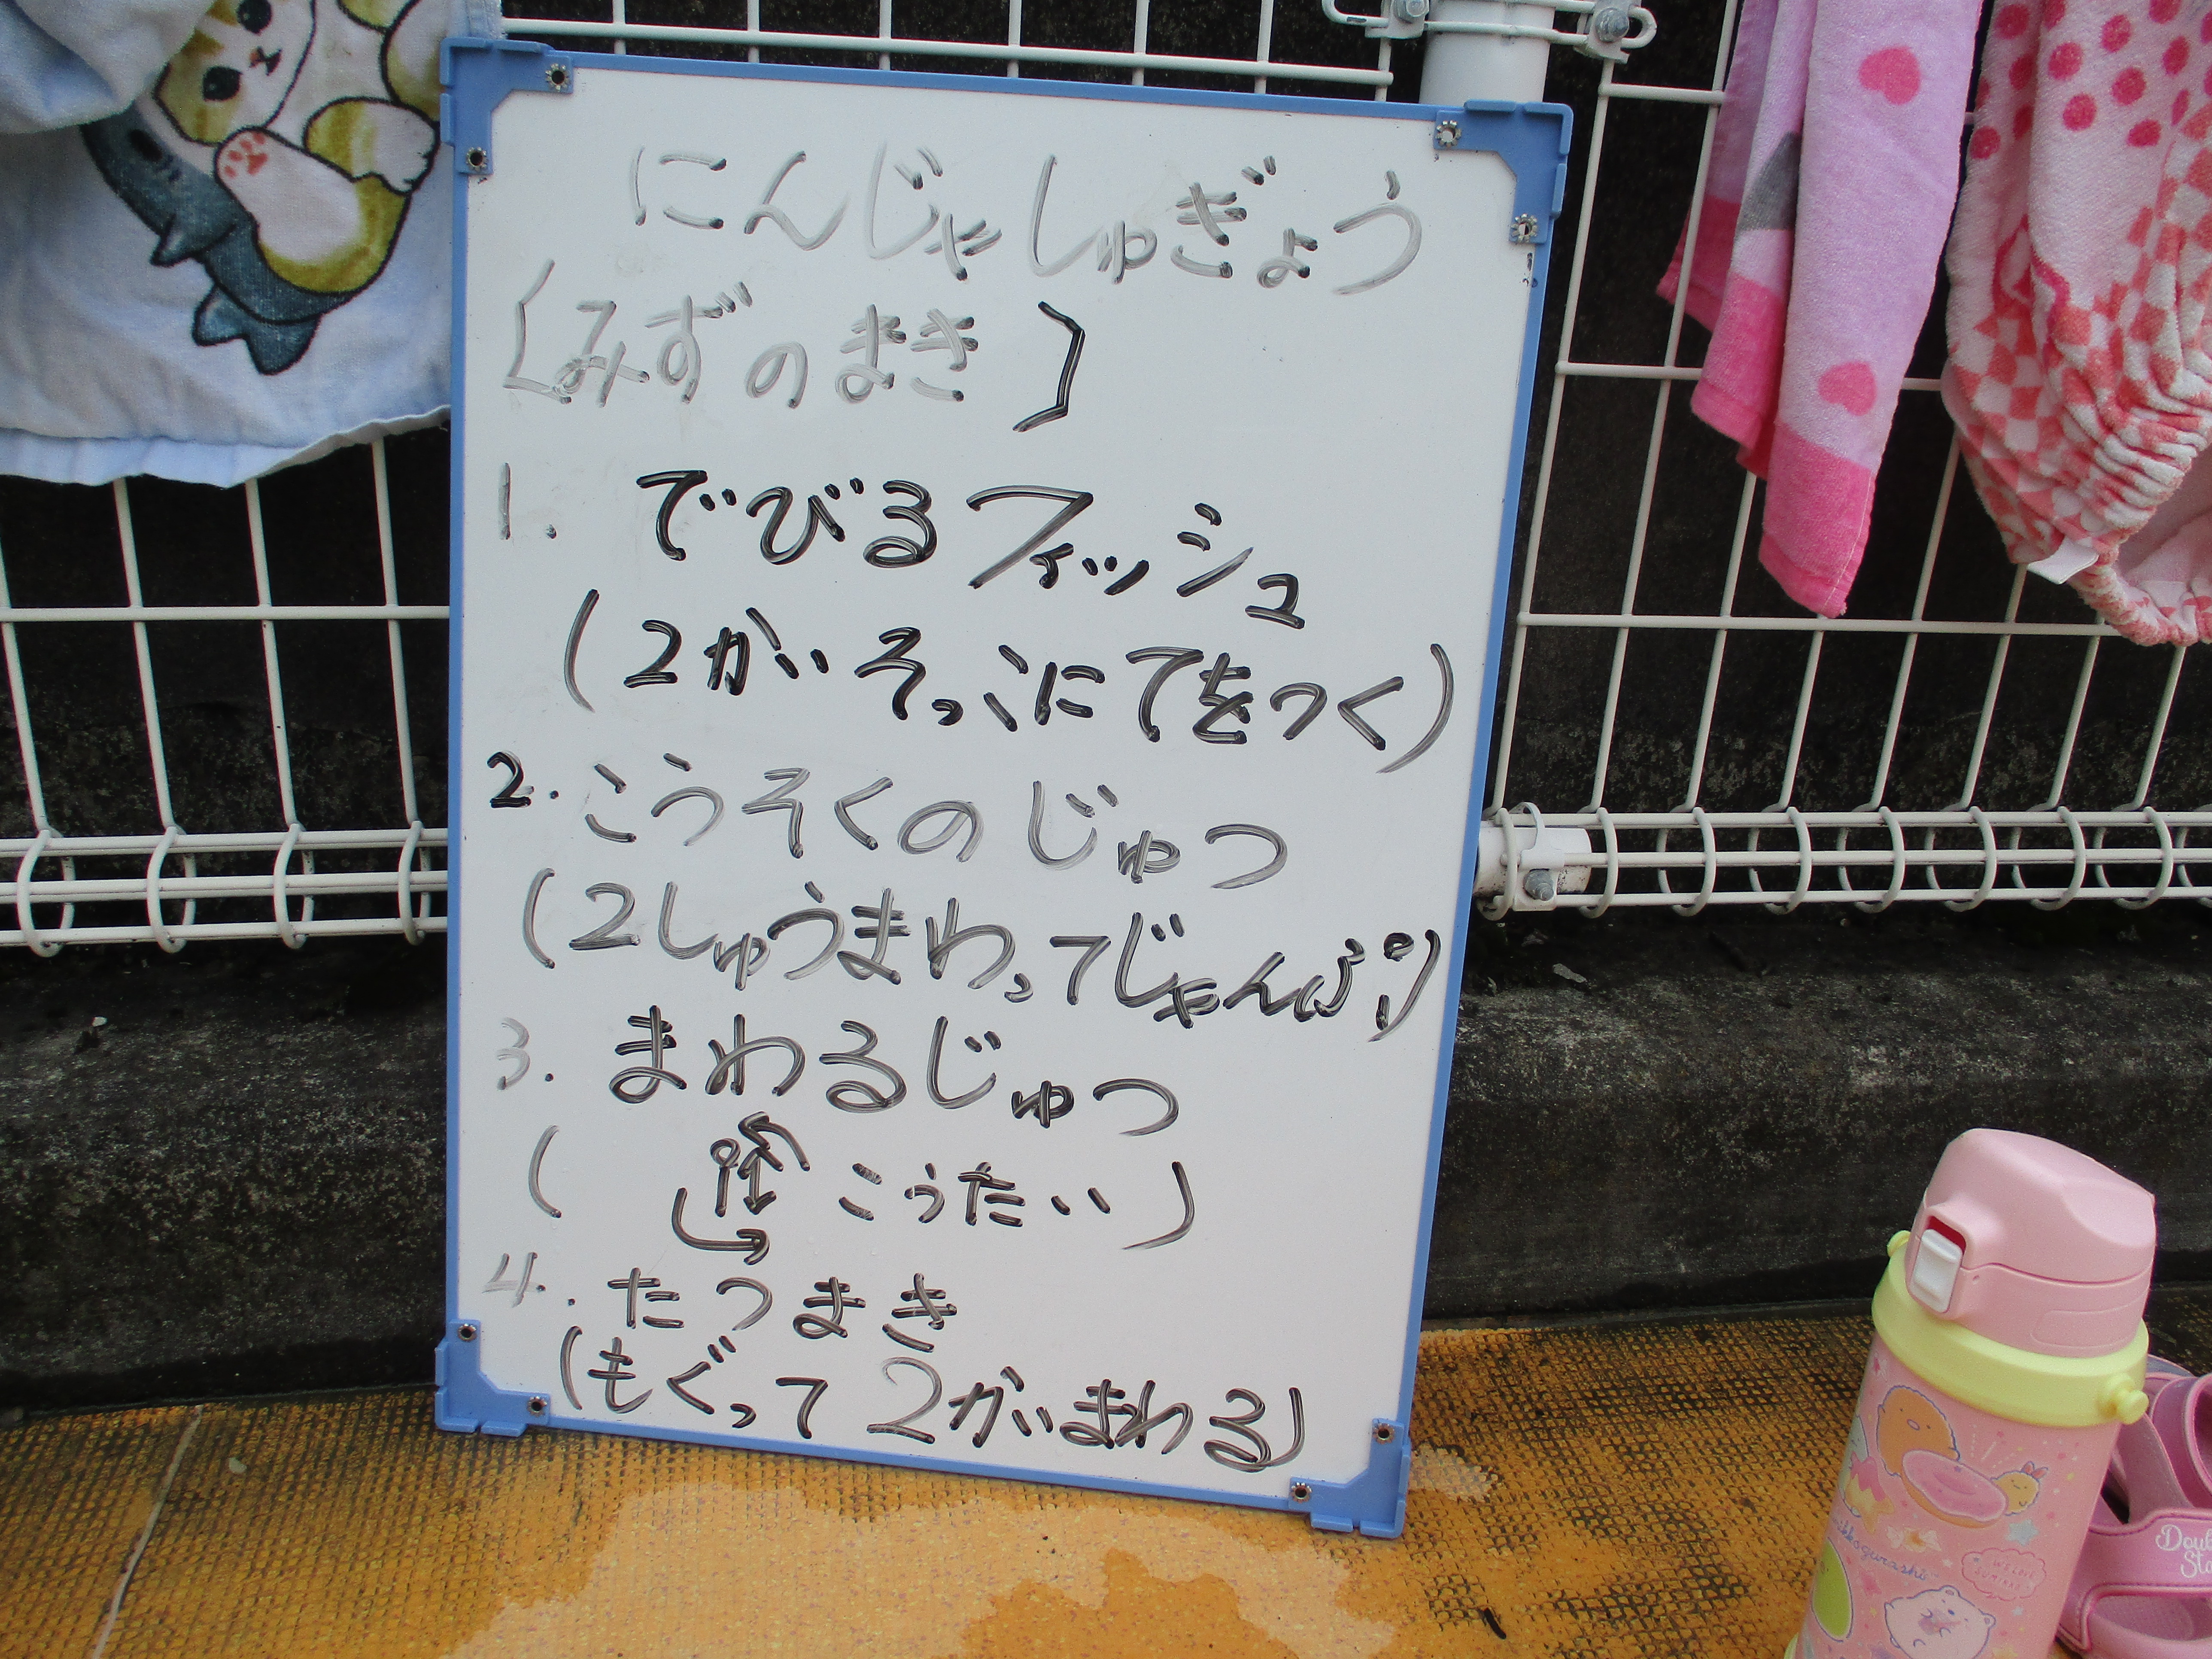 にんじゃしゅぎょう
〔みずのまき〕
1. でびるフィッシュ
(2かいそっこにてをつく)
2. こうそくのじゅつ
(2しゅうまわってじゃんぷ)
3. まわるじゅつ
(こうたい)
4. たつまき
(もぐって2かいまわる)